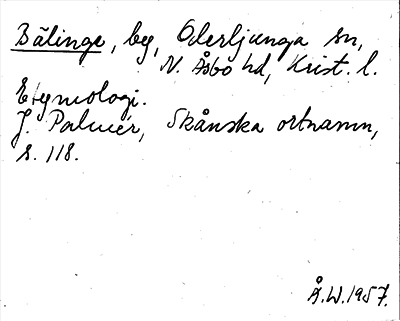 Bälinge, by, Oderljunga sn,
N. Åsbo hd, Krist. l.
Etymologi.
J. Palmér, Skånska ortnamn,
s. 118.
Å.W.1957.